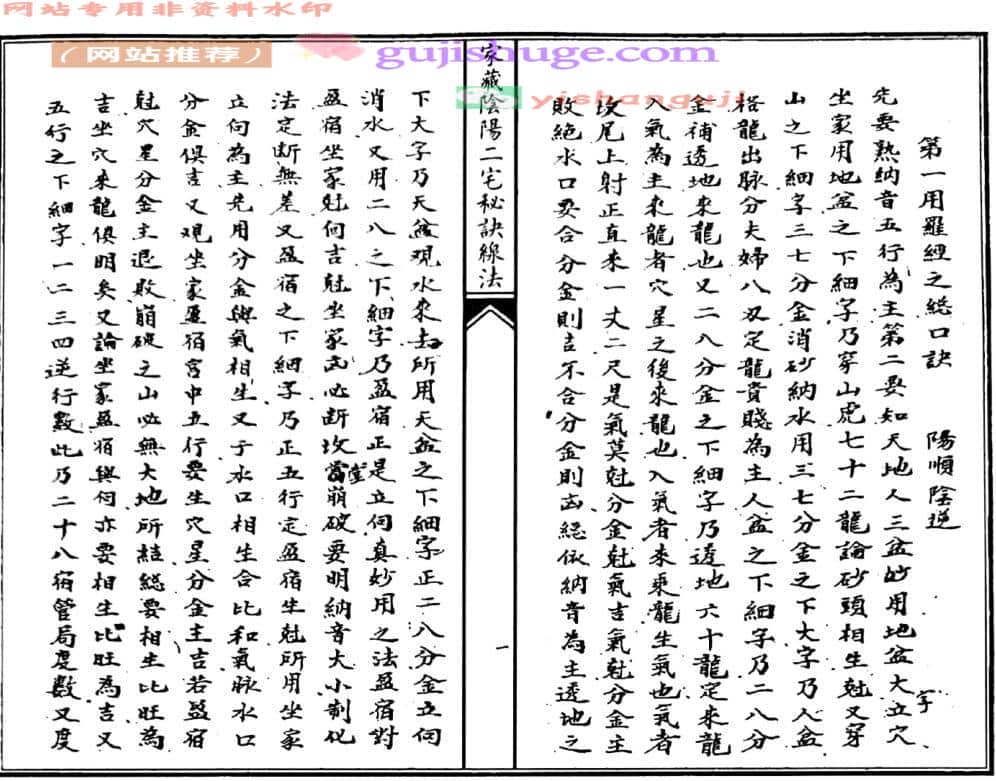 网站专用非资料水印
（网站推荐）
gujishuge.com
yishanguji
第一用羅經之総口訣 陽順陰逆
先要熟納音五行為主第二要知天地人三盆妙用地盆大立穴
字
坐家用地盆之下細字乃穿山虎七十二龍論砂頭相生尅又穿
山之下細字三七分金消砂納水用三七分金之下大字乃人盆
格龍出脉分夫婦八刄定龍貴賤為主人盆之下細字乃二八分
金補透地來龍也又二八分金之下細字乃透地六十龍定來龍
入氣為主來龍者穴星之後來龍也入氣者來乘龍生氣也氣者
坟尾上射正直來一丈二尺是氣莫尅分金尅氣吉氣尅分金主
敗絕水口要合分金則吉不合分金則凶総依納音為主透地之
家藏陰陽二宅秘訣線法
一
下大字乃天盆观水來去所用天盆之下細字正二八分金立向
消水又用二八之下細字乃盈宿正是立向真妙用之法盈宿對
盈宿坐家尅向吉尅坐家凶必断坟堂當崩破要明納音大小制化
法定断無差又盈宿之下細字乃正五行定盈宿生尅所用坐家
立向為主先用分金與氣相生又于水口相生合比和氣脉水口
分金俱吉又观坐家盈宿宮中五行要生穴星分金主吉若盈宿
尅穴星分金主退敗崩破之山必無大地所結総要相生比旺為
吉坐穴來龍俱明矣又論坐家盈宿與向亦要相生比旺為吉又
五行之下細字一二三四逆行數此乃二十八宿管局度數又度